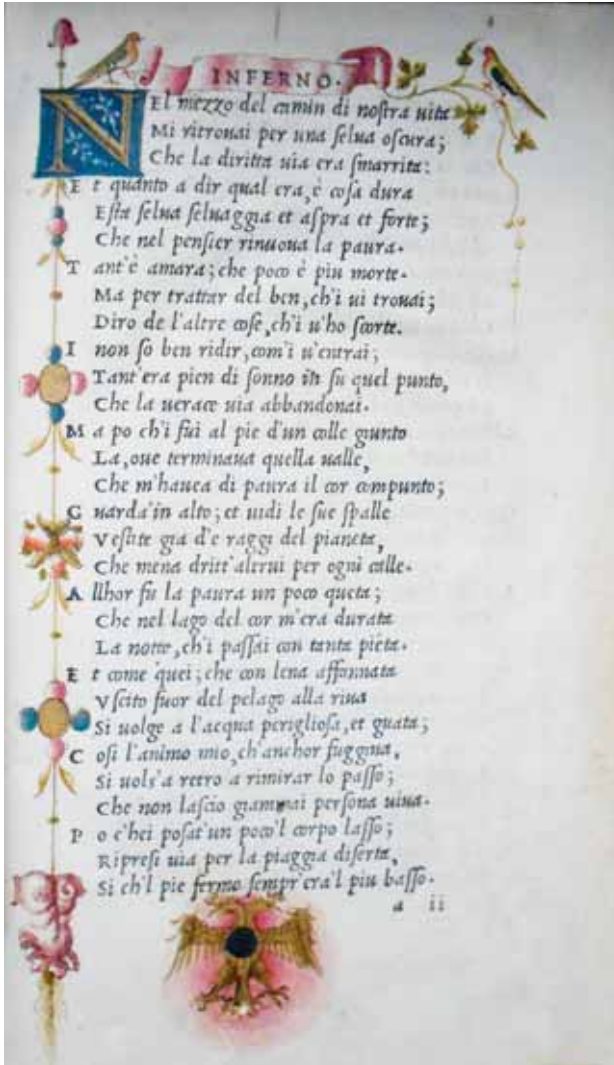 INFERNO.
NEl mezzo del camin di noſtra uita
Mi ritrouai per una ſelua oſcura;
Che la diritta uia era ſmarrita:
E t quanto a dir qual era, è coſa dura
Eſta ſelua ſeluaggia et aſpra et forte;
Che nel penſier rinuoua la paura.
T ant'è amara; che poco è piu morte.
Ma per trattar del ben, ch'i ui trouai;
Diro de l'altre coſe, ch'i u'ho ſcorte.
I non ſo ben ridir, com'i u'entrai;
Tant'era pien di ſonno in ſu quel punto,
Che la uerace uia abbandonai.
M a po ch'i fui al pie d'un colle giunto
La, oue terminaua quella ualle,
Che m'hauea di paura il cor compunto;
G uarda'in alto; et uidi le ſue ſpalle
Veſtite gia d'e raggi del pianeta,
Che mena dritt'altrui per ogni calle.
A llhor fu la paura un poco queta;
Che nel lago del cor m'era durata
La notte, ch'i paſſai con tanta pieta.
E t come quei; che con lena affannata
Vſcito fuor del pelago alla riua
Si uolge a l'acqua periglioſa, et guata;
C oſi l'animo mio, ch'anchor fuggiua,
Si uolſ'a retro a rimirar lo paſſo;
Che non laſcio giammai perſona uiua.
P o c'hei poſat'un poco'l corpo laſſo;
Ripreſi uia per la piaggia diſerta,
Si ch'l pie fermo ſempr'era'l piu baſſo.
a ii